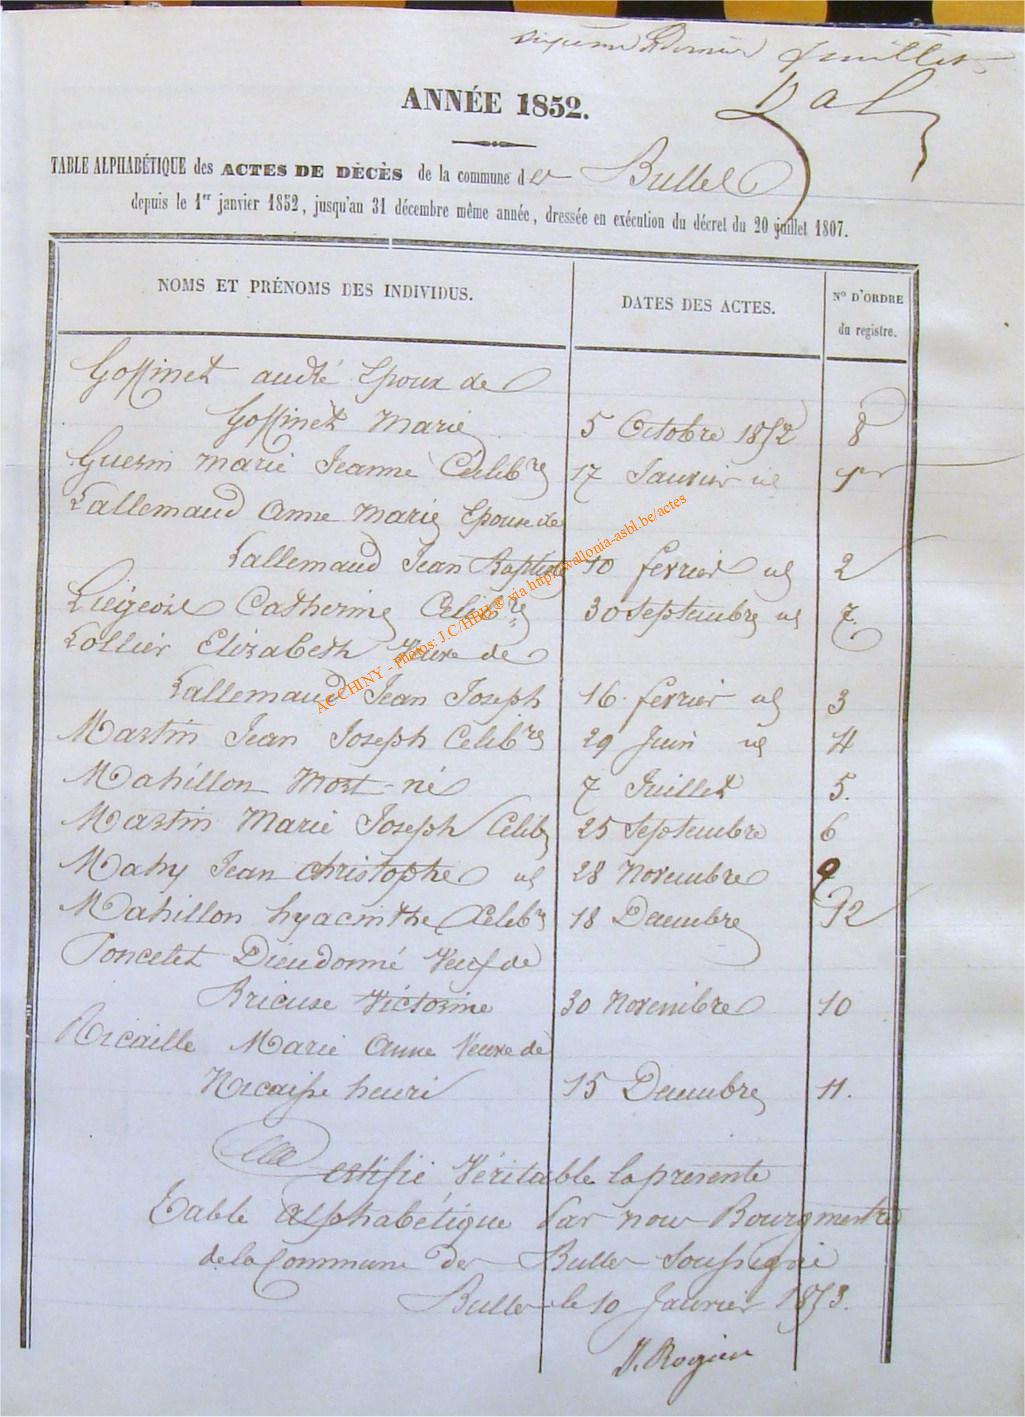 Dernier feuillet
ANNÉE 1852.
TABLE ALPHABÉTIQUE des ACTES DE DÉCÈS de la commune de Bulles
depuis le 1er janvier 1852, jusqu'au 31 décembre même année, dressée en exécution du décret du 20 juillet 1807.
NOMS ET PRÉNOMS DES INDIVIDUS. DATES DES ACTES. No D'ORDRE du registre.
Goffinet André Epoux de
Goffinet Marie 5 Octobre 1852 8
Guerin Marie Jeanne Celibre 17 Janvier id 1er
Lallemand Anne Marie Epouse de
Lallemand Jean Baptiste 10 fevrier id 2
Liégeois Catherine Celibre 30 Septembre id 7.
Collier Elizabeth Veuve de
Lallemand Jean Joseph 16 fevrier id 3
Martin Jean Joseph Celibre 29 Juin id 4
Mahillon Mort-né 7 Juillet 5.
Martin Marie Joseph Celib 25 Septembre 6
Mahy Jean Christophe id 28 Novembre 9
Mahillon hyacinthe Celibre 18 Decembre 12
Poncelet Dieudonné Veuf de
Brieuse Victorine 30 Novembre 10
Nicaille Marie Anne Veuve de
Nicaisse henri 15 Decembre 11.
Certifié Véritable la presente
Table Alphabétique Par nous Bourgmestre
de la Commune de Bulles Soussigné
Bulles le 10 Janvier 1853.
J. Rogier
AC CHINY - Photos: J.C/HBH @ via http://wallonia-asbl.be/actes